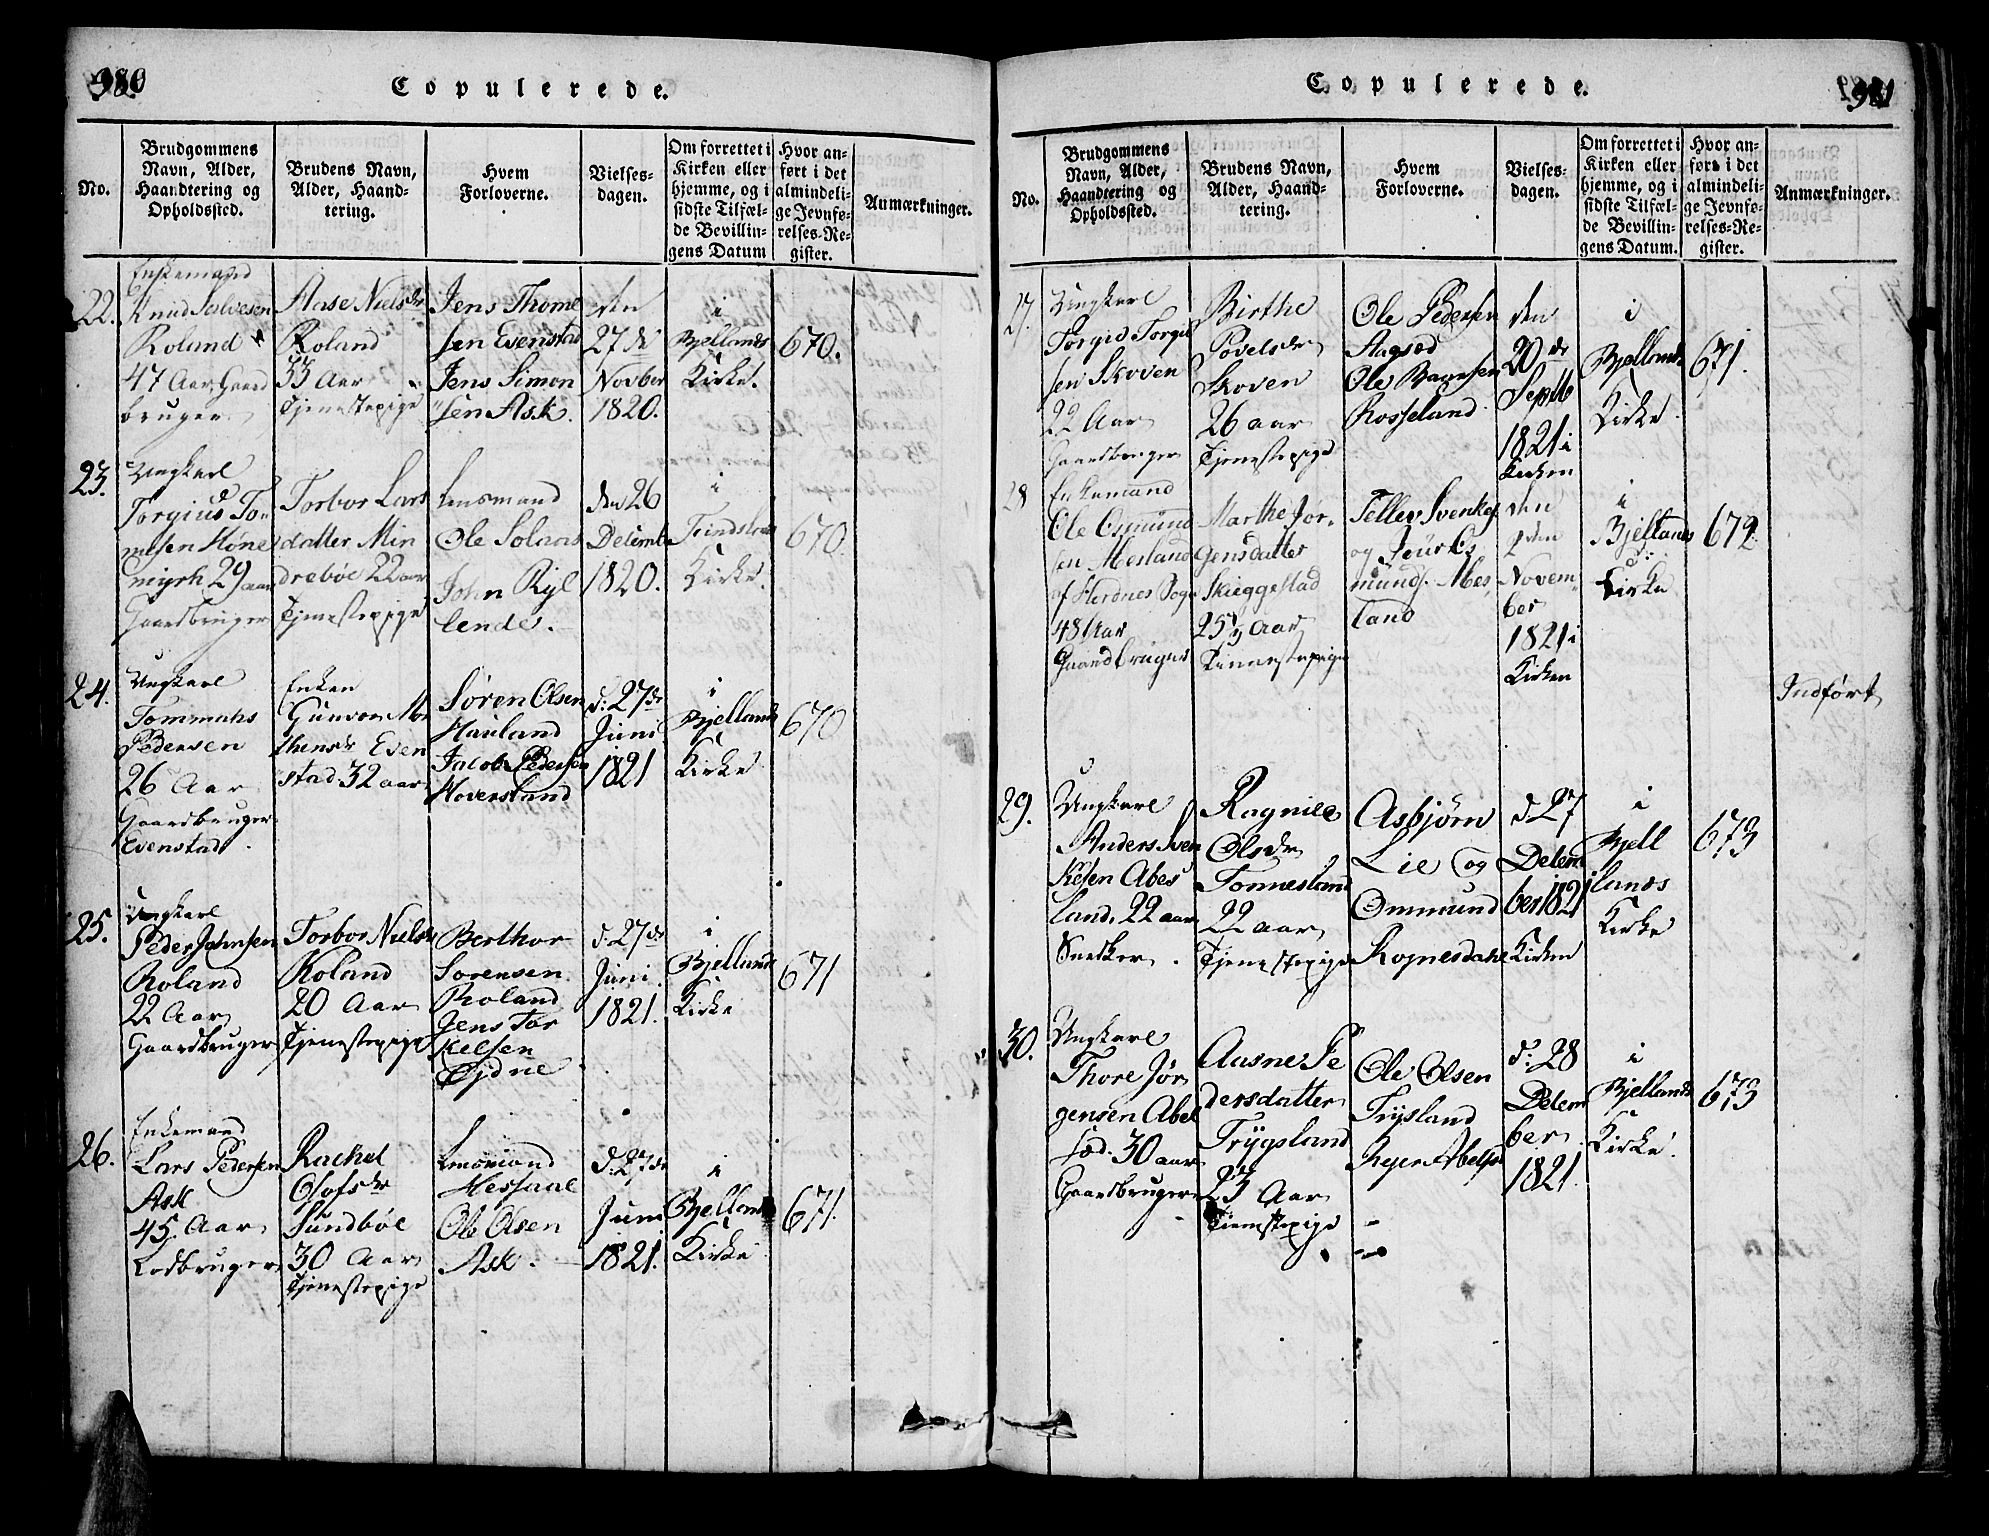 980
Copulerede.
No.
Brudgommens
Navn, Alder,
Haandtering og
Opholdssted.
Brudens Navn,
Alder, Haand-
tering.
Hvem
Forloverne.
Vielses-
dagen.
Om forrettet i
Kirken eller
hjemme, og i
sidste Tilfæl-
de Bevillin-
gens Datum
Hvor an-
ført i det
almindeli-
ge Jevnfø-
relses-Re-
gister.
Anmærkninger.
22.
Enkemand
Knud Salvesen
Roland
47 Aar, Gaard
bruger
Aase Nielsdr
Roland
33 Aar
Tjenestepige
Jens Thome
sen Evenstad
Jens Simon
sen Ask.
den
27de
Novber
1820.
i
Bjellands
Kirke.
670.
23.
Ungkarl
Torgius To-
mesen Høne
myrh 29 aar
Gaardbruger
Torbor Lars
datter Min
drebøe 22 aar
Tjenestepige
Lensmand
Ole Solaas
John Ryl
lende.
den 26
Decemb
1820.
i
Kirke.
670.
24.
Ungkarl
Tommahs
Pedersen
26 Aar
Gaardbruger
Evenstad.
Enken
Gunvor Mo
thensdr Even
stad 32 aar
Søren Olsen
Hauland
Jacob Pedersen
Hoversland
d: 27de
Juni
1821
i
Bjellands
Kirke
670
25.
Ungkarl
Peder Johnsen
Roland
22 Aar
Gaardbruger
Torbor Nielsdr
Roland
20 Aar
Tjenestepige
Berthor
Sorensen
Roland
Jens Tor
kelsen
Øjdne
d. 27de
Juni
1821.
i
Bjellands
Kirke
671
26.
Enkemand
Lars Pedersen
Ask
45 Aar
Lodbruger
Rachel
Olofsdr
Sundbøe
30 Aar
Tjenestepige
Lensmand
Messaae
Ole Olsen
Ask.
d. 27de
Juni
1821.
i
Bjellands
Kirke
671.
981
Copulerede.
No.
Brudgommens
Navn, Alder,
Haandtering og
Opholdssted.
Brudens Navn,
Alder, Haand-
tering.
Hvem
Forloverne.
Vielses-
dagen.
Om forrettet i
Kirken eller
hjemme, og i
sidste Tilfæl-
de Bevillin-
gens Datum.
Hvor an-
ført i det
almindeli-
ge Jevnfø-
relses-Re-
gister.
Anmærkninger.
27.
Ungkarl
Torgid Torgid
sen Skoven
22 Aar
Gaardbruger
Birthe
Povelsdr
Skoven
26 aar
Tjenestepige
Ole Pedersen
Aagsæd
Ole Baarsen
Rosseland
den
20de
Septb
1821 i
Kirken
i
Bjellands
Kirke.
671.
28
Enkemand
Ole Osmund
sen Mesland
af Herdnes Sogn
48 Aar
Gaardbruger
Marthe Jør-
gensdatter
Skieggestad
25 1/2 Aar
Tienestepige
Tellev Svenkes
munds. Abes
land
den
2den
Novem
ber
1821 i
Kirken
i
Bjellands
Kirke
672.
Indført
29.
Ungkarl
Anders Sven
kesen Abes
land. 22 aar
Snedker.
Ragnile
Olsdr
Tonnesland
22 aar
Tjenestepige
Asbjørn
Lie og
Ommund
Rognesdahl
d 27
Decem
ber 1821 i
Kirken
i
Bjell
lands
Kirke
673
30.
Ungkarl
Thore Jør
gensen Abel
sæd. 30 aar
Gaardbruger
Aasne Pe
dersdatter
Trygsland
23 Aar
Tienestepige
Ole Olsen
Trysland
Reier Abelsæd
d: 28
Decem
ber
1821.
i
Bjellands
Kirke.
673